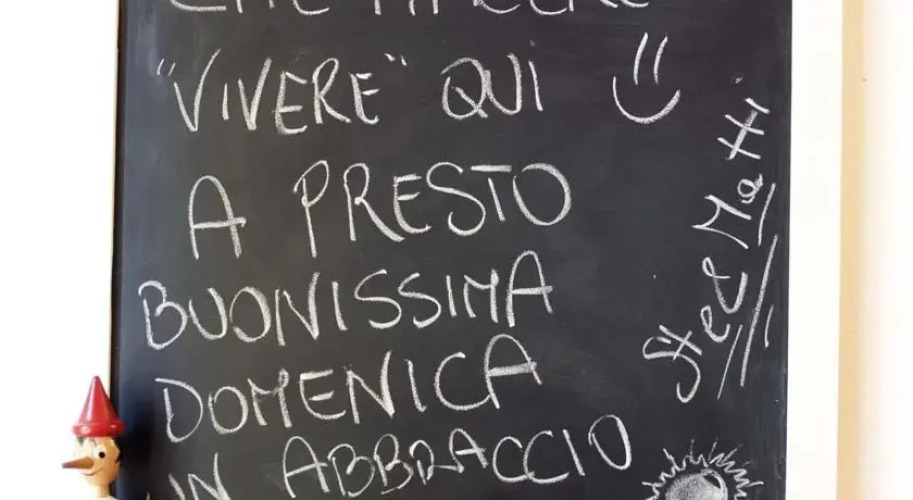 CHE PIACERE
"VIVERE" QUI
A PRESTO
BUONISSIMA
DOMENICA
UN ABBRACCIO
Ste e Matti